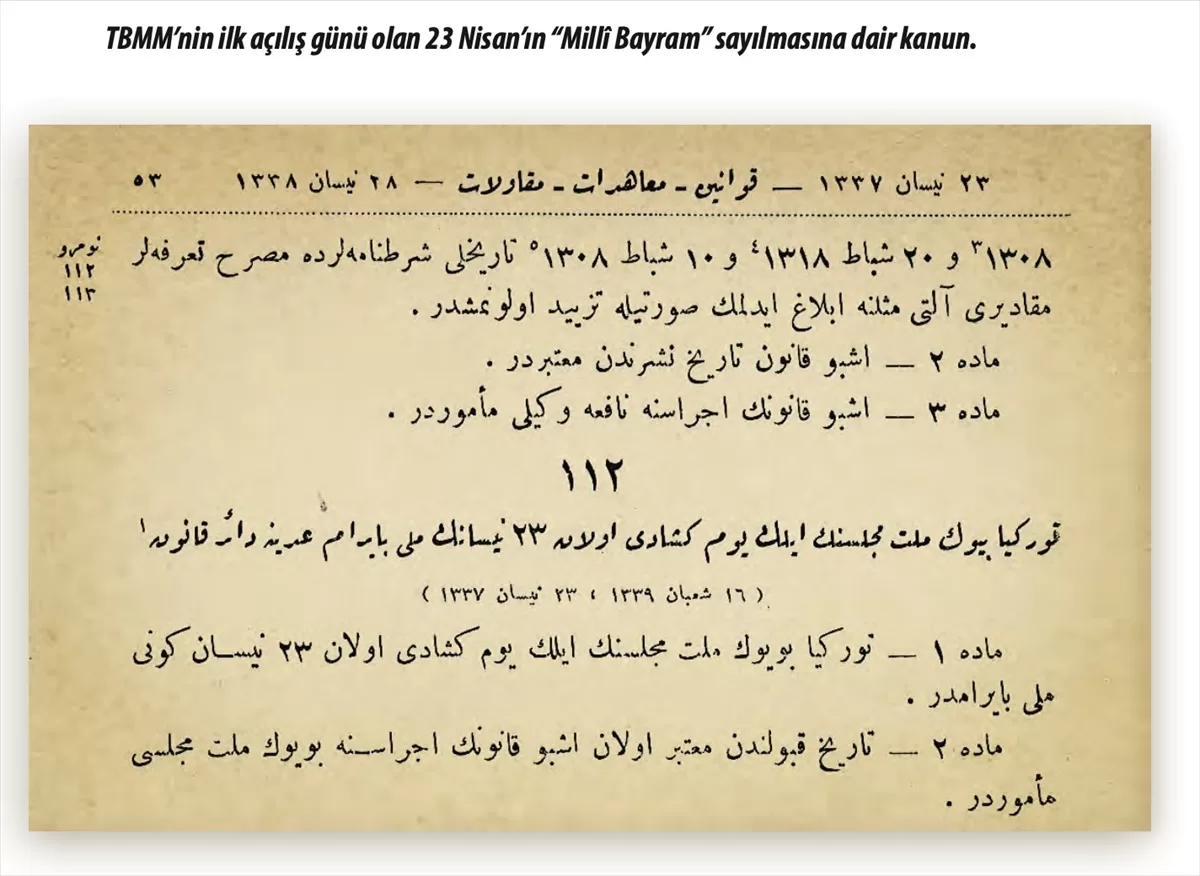 TBMM’nin ilk açılış günü olan 23 Nisan’ın “Millî Bayram” sayılmasına dair kanun.
٢٣ نیسان ١٣٣٧ — قوانین - معاهدات - مقاولات — ٢٨ نیسان ١٣٣٨ ٥٣
١٣٠٨٣ و ٢٠ شباط ١٣١٨٤ و ١٠ شباط ١٣٠٨٥ تاریخلی شرطنامه‌لرده مصرح تعرفه‌لر
نومرو
١١٢
١١٣
مقادیری آلتی مثلنه ابلاغ ایدلمك صورتیله تزیید اولونمشدر .
ماده ٢ — اشبو قانون تاریخ نشرندن معتبردر .
ماده ٣ — اشبو قانونك اجراسنه نافعه وكیلی مأموردر .
١١٢
تورکیا بیوك ملت مجلسنك ایلك یوم كشادی اولان ٢٣ نیسانك ملی بایرام عدینه دائر قانون١
( ١٦ شعبان ١٣٣٩ ، ٢٣ نیسان ١٣٣٧ )
ماده ١ — تورکیا بویوك ملت مجلسنك ایلك یوم كشادی اولان ٢٣ نیسان كونی
ملی بایرامدر .
ماده ٢ — تاریخ قبولندن معتبر اولان اشبو قانونك اجراسنه بویوك ملت مجلسی
مأموردر .